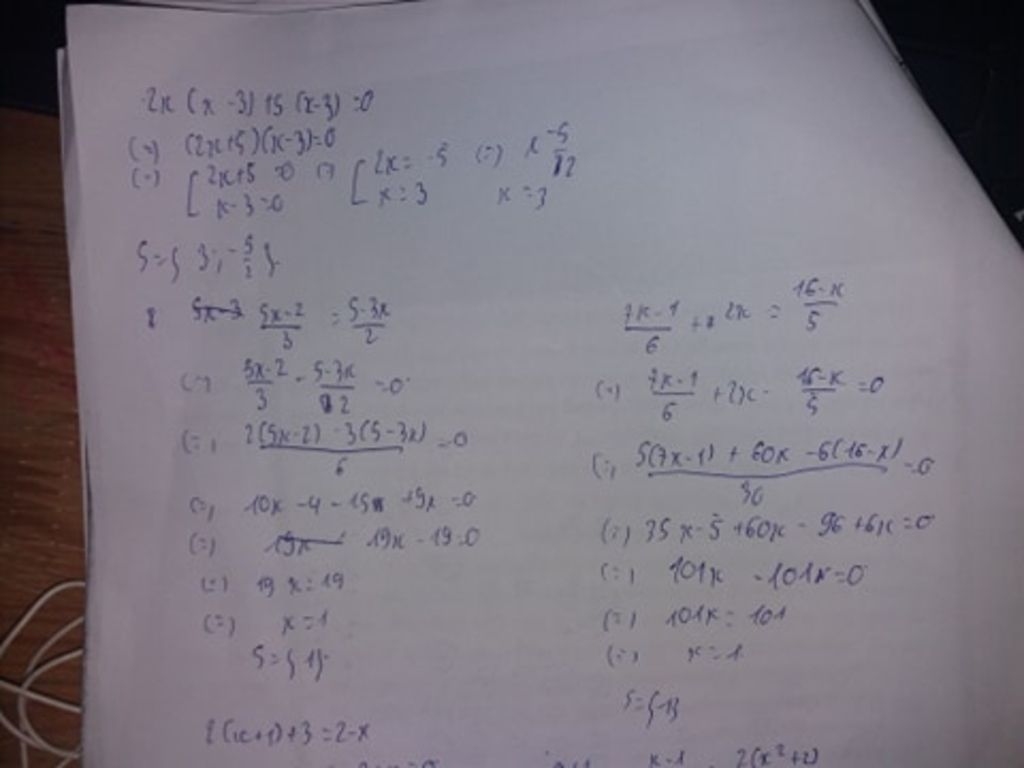 2x (x - 3) + 5 (x-3) = 0
(=) (2x+5)(x-3)=0
(=) [ 2x+5 = 0 (=) [ 2x = -5 (=) x = -5/2
x-3=0 x = 3 x = 3
S={ 3; -5/2 }
5x-2/3 = 5-3x/2
(=) 5x-2/3 - 5-3x/2 = 0
(=) 2(5x-2) - 3(5-3x)/6 = 0
(=) 10x - 4 - 15 + 9x = 0
(=) 19x - 19 = 0
(=) 19x = 19
(=) x = 1
S={1}
7x-1/6 + 2x = 16-x/5
(=) 7x-1/6 + 2x - 16-x/5 = 0
(=) 5(7x-1) + 60x - 6(16-x)/30 = 0
(=) 35x - 5 + 60x - 96 + 6x = 0
(=) 101x - 101x = 0
(=) 101x = 101
(=) x = 1
2(x+1)+3 = 2-x
x-1 2(x²+2)